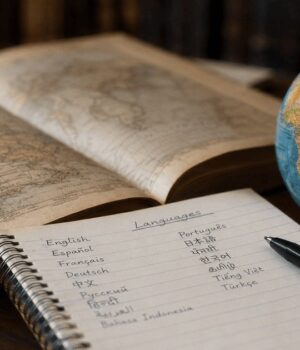 Languages
English
Español
Français
Deutsch
中文
Русский
Bahasa Indonesia
Português
日本語
한국어
Tiếng Việt
Türkçe